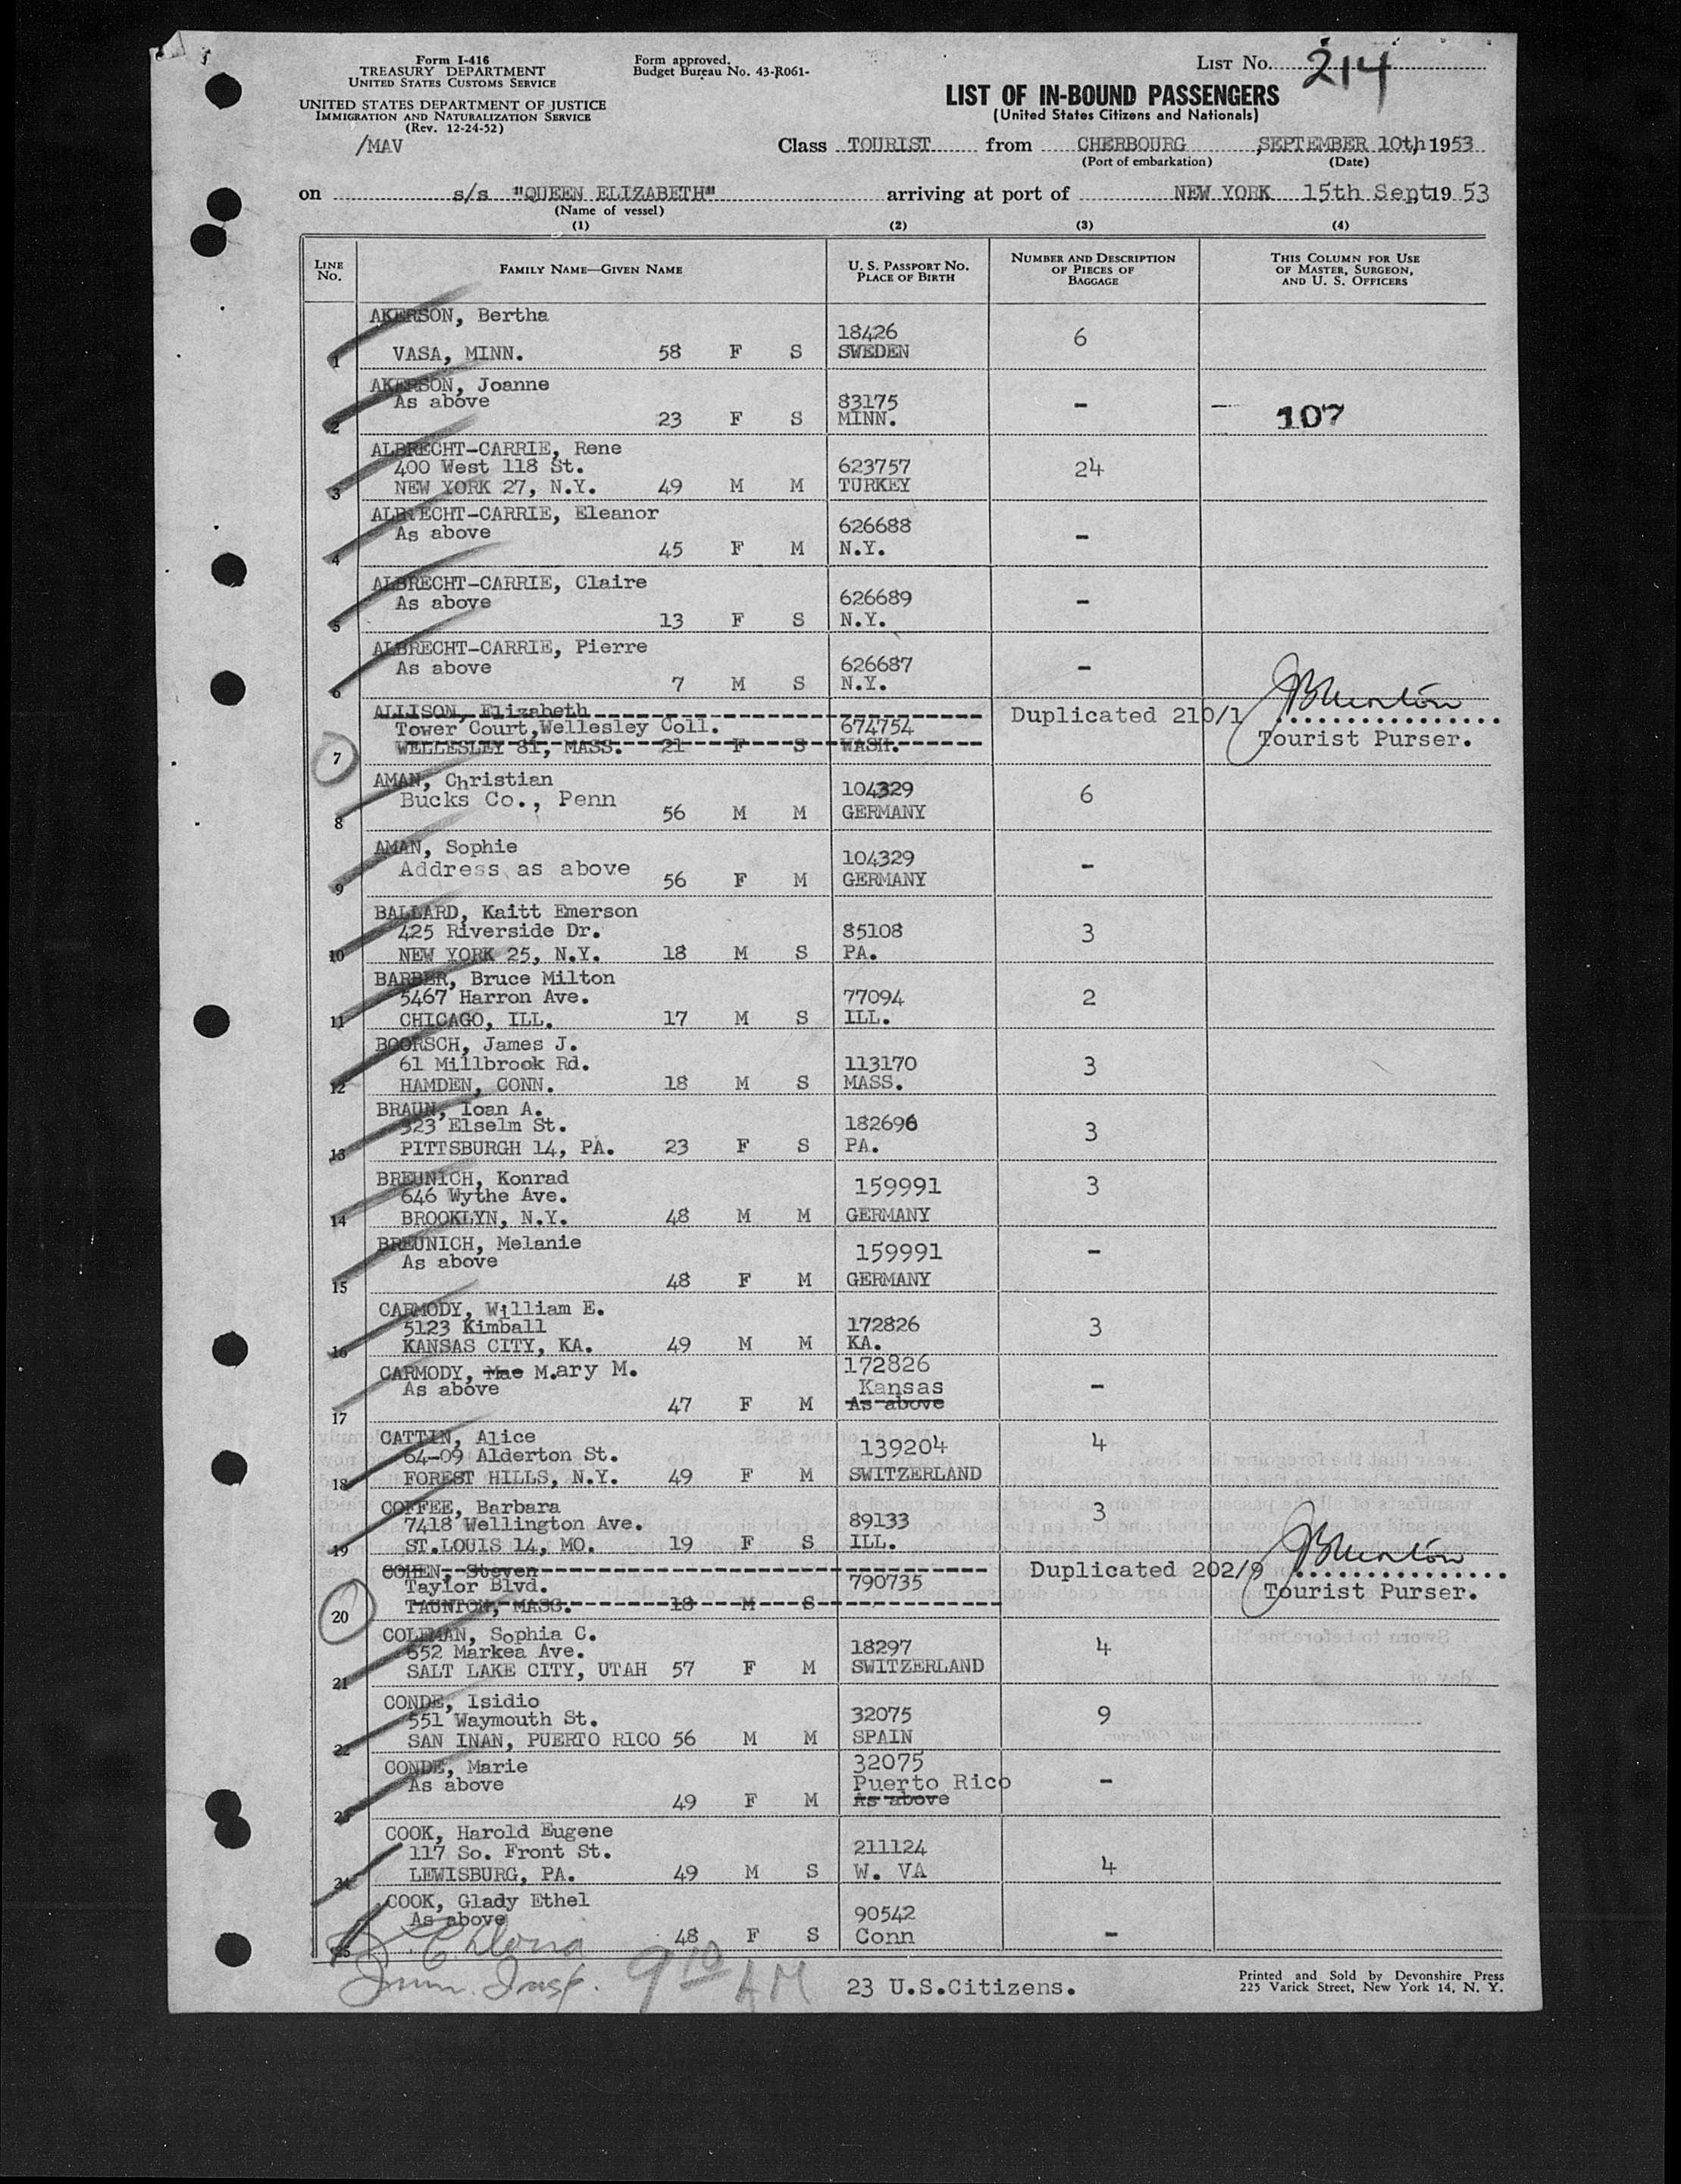 Form I-416
TREASURY DEPARTMENT
UNITED STATES CUSTOMS SERVICE
UNITED STATES DEPARTMENT OF JUSTICE
IMMIGRATION AND NATURALIZATION SERVICE
(Rev. 12-24-52)
/MAV
Form approved.
Budget Bureau No. 43-R061-
LIST No. 214
LIST OF IN-BOUND PASSENGERS
(United States Citizens and Nationals)
Class TOURIST from CHERBOURG, SEPTEMBER 10th, 1953
(Port of embarkation) (Date)
on s/s "QUEEN ELIZABETH" arriving at port of NEW YORK 15th Sept 19 53
(Name of vessel)
(1) (2) (3) (4)
LINE No. FAMILY NAME—GIVEN NAME U. S. PASSPORT No. PLACE OF BIRTH NUMBER AND DESCRIPTION OF PIECES OF BAGGAGE THIS COLUMN FOR USE OF MASTER, SURGEON, AND U. S. OFFICERS
AKERSON, Bertha
18426 6
1 VASA, MINN. 58 F S SWEDEN
AKERSON, Joanne
As above 83175 -
2 23 F S MINN. - 107
ALBRECHT-CARRIE, Rene
400 West 118 St. 623757 24
3 NEW YORK 27, N.Y. 49 M M TURKEY
ALBRECHT-CARRIE, Eleanor
As above 626688 -
4 45 F M N.Y.
ALBRECHT-CARRIE, Claire
As above 626689 -
5 13 F S N.Y.
ALBRECHT-CARRIE, Pierre
As above 626687 -
6 7 M S N.Y.
ALLISON, Elizabeth Duplicated 210/1
Tower Court, Wellesley Coll. 674754 Tourist Purser.
7 WELLESLEY 81, MASS. 21 F S WASH.
AMAN, Christian
Bucks Co., Penn 104329 6
8 56 M M GERMANY
AMAN, Sophie
Address as above 104329 -
9 56 F M GERMANY
BALLARD, Kaitt Emerson
425 Riverside Dr. 85108 3
10 NEW YORK 25, N.Y. 18 M S PA.
BARBER, Bruce Milton
5467 Harron Ave. 77094 2
11 CHICAGO, ILL. 17 M S ILL.
BOORSCH, James J.
61 Millbrook Rd. 113170 3
12 HAMDEN, CONN. 18 M S MASS.
BRAUN, Ioan A.
323 Elselm St. 182696 3
13 PITTSBURGH 14, PA. 23 F S PA.
BREUNICH, Konrad
646 Wythe Ave. 159991 3
14 BROOKLYN, N.Y. 48 M M GERMANY
BREUNICH, Melanie
As above 159991 -
15 48 F M GERMANY
CARMODY, William E.
5123 Kimball 172826 3
16 KANSAS CITY, KA. 49 M M KA.
CARMODY, Mae M.ary M. 172826
As above Kansas -
17 47 F M As above
CATTIN, Alice
64-09 Alderton St. 139204 4
18 FOREST HILLS, N.Y. 49 F M SWITZERLAND
COFFEE, Barbara
7418 Wellington Ave. 89133 3
19 ST.LOUIS 14, MO. 19 F S ILL.
COHEN, Steven Duplicated 202/9
Taylor Blvd. 790735 Tourist Purser.
20 TAUNTON, MASS. 18 M S
COLEMAN, Sophia C.
652 Markea Ave. 18297 4
21 SALT LAKE CITY, UTAH 57 F M SWITZERLAND
CONDE, Isidio
551 Waymouth St. 32075 9
22 SAN INAN, PUERTO RICO 56 M M SPAIN
CONDE, Marie 32075
As above Puerto Rico -
23 49 F M As above
COOK, Harold Eugene
117 So. Front St. 211124 4
24 LEWISBURG, PA. 49 M S W. VA
COOK, Glady Ethel
As above 90542
25 48 F S Conn -
Imm. Insp. 9 10 AM
23 U.S.Citizens.
Printed and Sold by Devonshire Press
225 Varick Street, New York 14, N. Y.